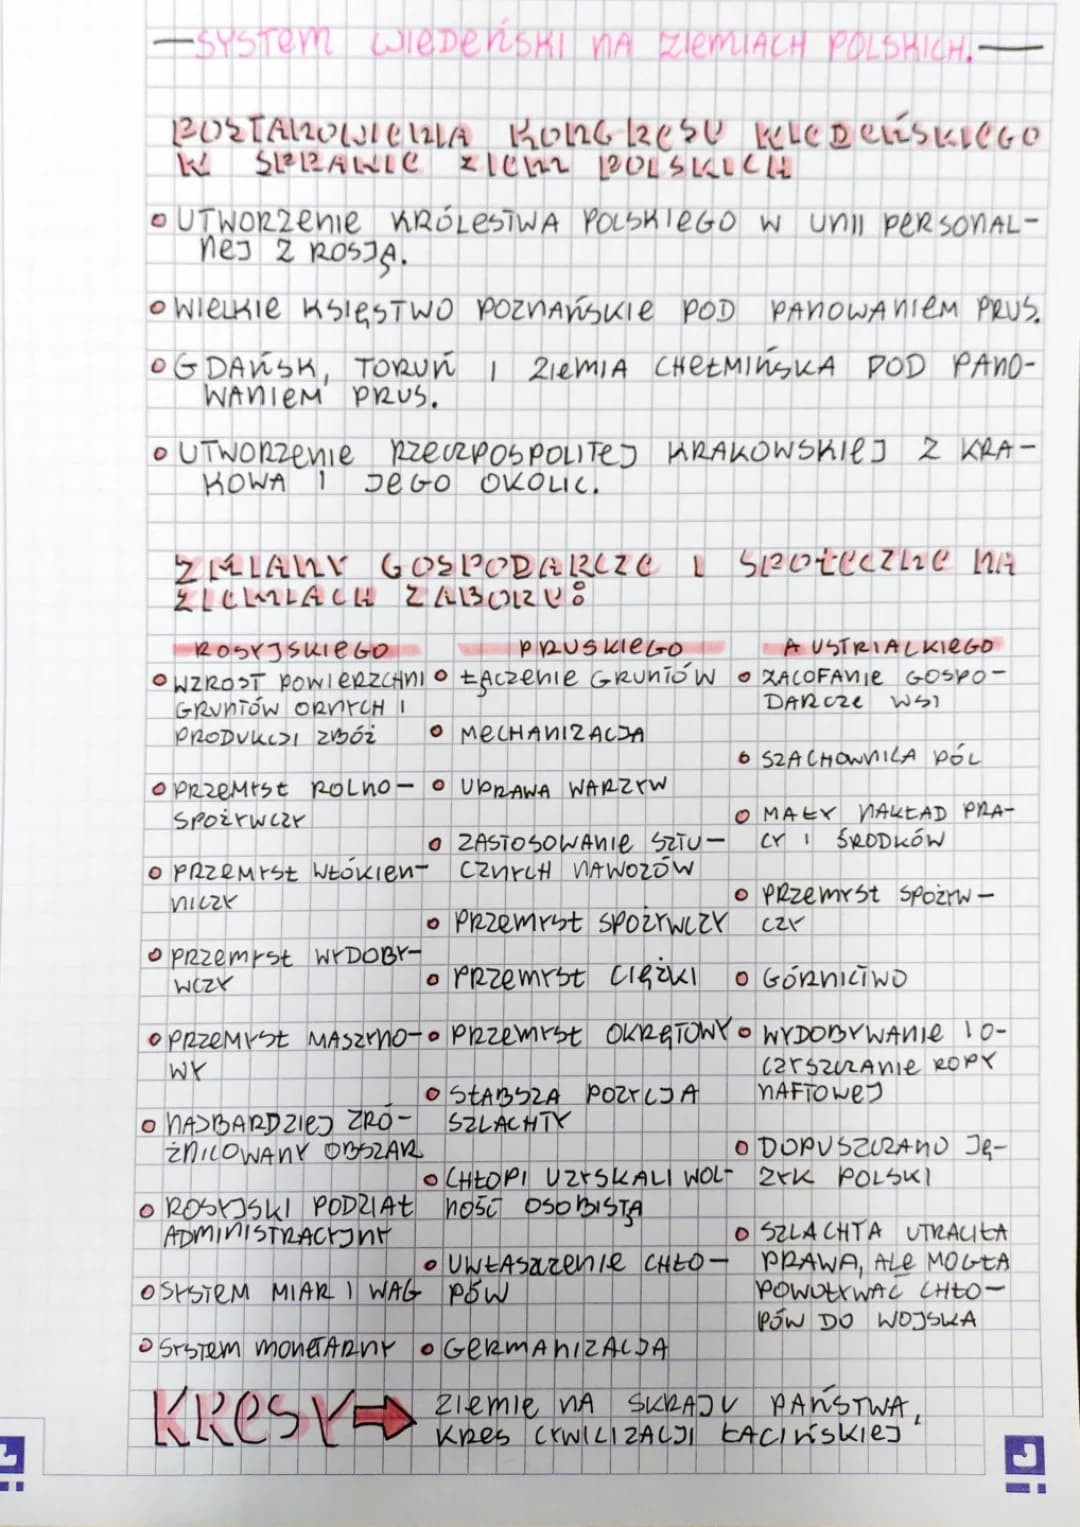 —SYSTEM WIEDEŃSKI NA ZIEMIACH POLSKICH.—
POSTANOWIENIA KONGRESU WIEDEŃSKIEGO
W SPRAWIE ZIEM POLSKICH
UTWORZENIE KRÓLESTWA POLSKIEGO W UNII PERSONAL-
NEJ Z ROSJĄ.
WIELKIE KSIĘSTWO POZNAŃSKIE POD PANOWANIEM PRUS.
GDAŃSK, TORUŃ I ZIEMIA CHEŁMIŃSKA POD PANO-
WANIEM PRUS.
UTWORZENIE RZECZPOSPOLITEJ KRAKOWSKIEJ Z KRA-
KOWA I JEGO OKOLIC.
ZMIANY GOSPODARCZE I SPOŁECZNE NA
ZIEMIACH ZABORU:
ROSYJSKIEGO
WZROST POWIERZCHNI
GRUNTÓW ORNYCH I
PRODUKCJI ZBÓŻ
PRZEMYSŁ ROLNO-
SPOŻYWCZY
PRZEMYSŁ WŁÓKIEN-
NICZY
PRZEMYSŁ WYDOBY-
WCZY
PRZEMYSŁ MASZYNO-
WY
NAJBARDZIEJ ZRÓ-
ŻNICOWANY OBSZAR
ROSYJSKI PODZIAŁ
ADMINISTRACYJNY
SYSTEM MIAR I WAG
SYSTEM MONETARNY
PRUSKIEGO
ŁĄCZENIE GRUNTÓW
MECHANIZACJA
UPRAWA WARZYW
ZASTOSOWANIE SZTU-
CZNYCH NAWOZÓW
PRZEMYSŁ SPOŻYWCZY
PRZEMYSŁ CIĘŻKI
PRZEMYSŁ OKRĘTOWY
SŁABSZA POZYCJA
SZLACHTY
CHŁOPI UZYSKALI WOL-
NOŚĆ OSOBISTĄ
UWŁASZCZENIE CHŁO-
PÓW
GERMANIZACJA
AUSTRIALKIEGO
ZACOFANIE GOSPO-
DARCZE WSI
SZACHOWNICA PÓL
MAŁY NAKŁAD PRA-
CY I ŚRODKÓW
PRZEMYSŁ SPOŻYW-
CZY
GÓRNICTWO
WYDOBYWANIE I O-
CZYSZCZANIE ROPY
NAFTOWEJ
DOPUSZCZANO JĘ-
ZYK POLSKI
SZLACHTA UTRACIŁA
PRAWA, ALE MOGŁA
POWOŁYWAĆ CHŁO-
PÓW DO WOJSKA
KRESY→ ZIEMIE NA SKRAJU PAŃSTWA,
KRES CYWILIZACJI ŁACIŃSKIEJ